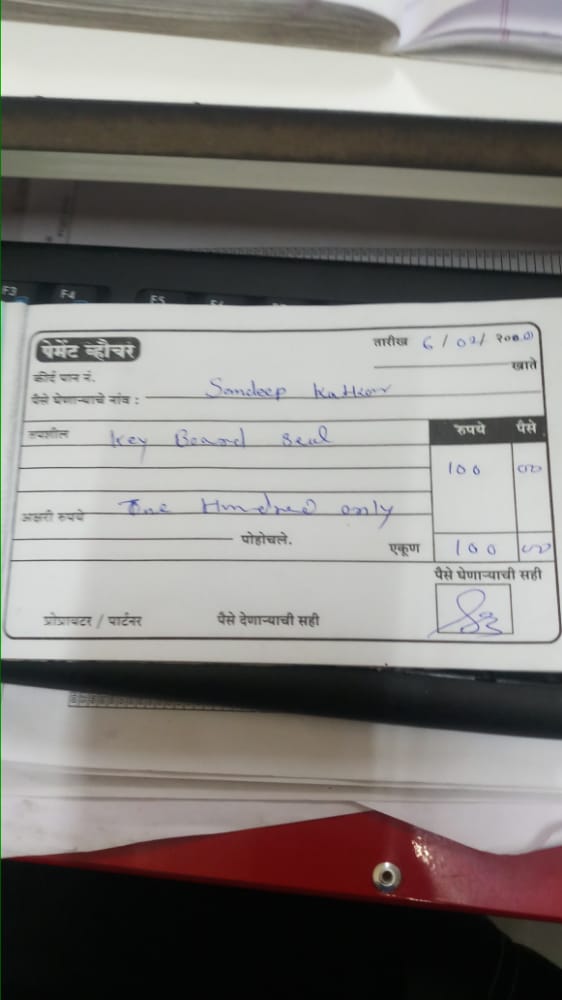 F3 F4 F5
पेमेंट व्हौचर
तारीख 6 / 02 /
खाते
कीर्द पान नं.
पैसे घेणाऱ्याचे नांव : Sandeep Katkar
तपशील Key Board seul
रुपये पैसे
100 00
अक्षरी रुपये One Hundred only
पोहोचले.
एकूण 100 00
पैसे घेणाऱ्याची सही
प्रोप्रायटर / पार्टनर पैसे देणाऱ्याची सही